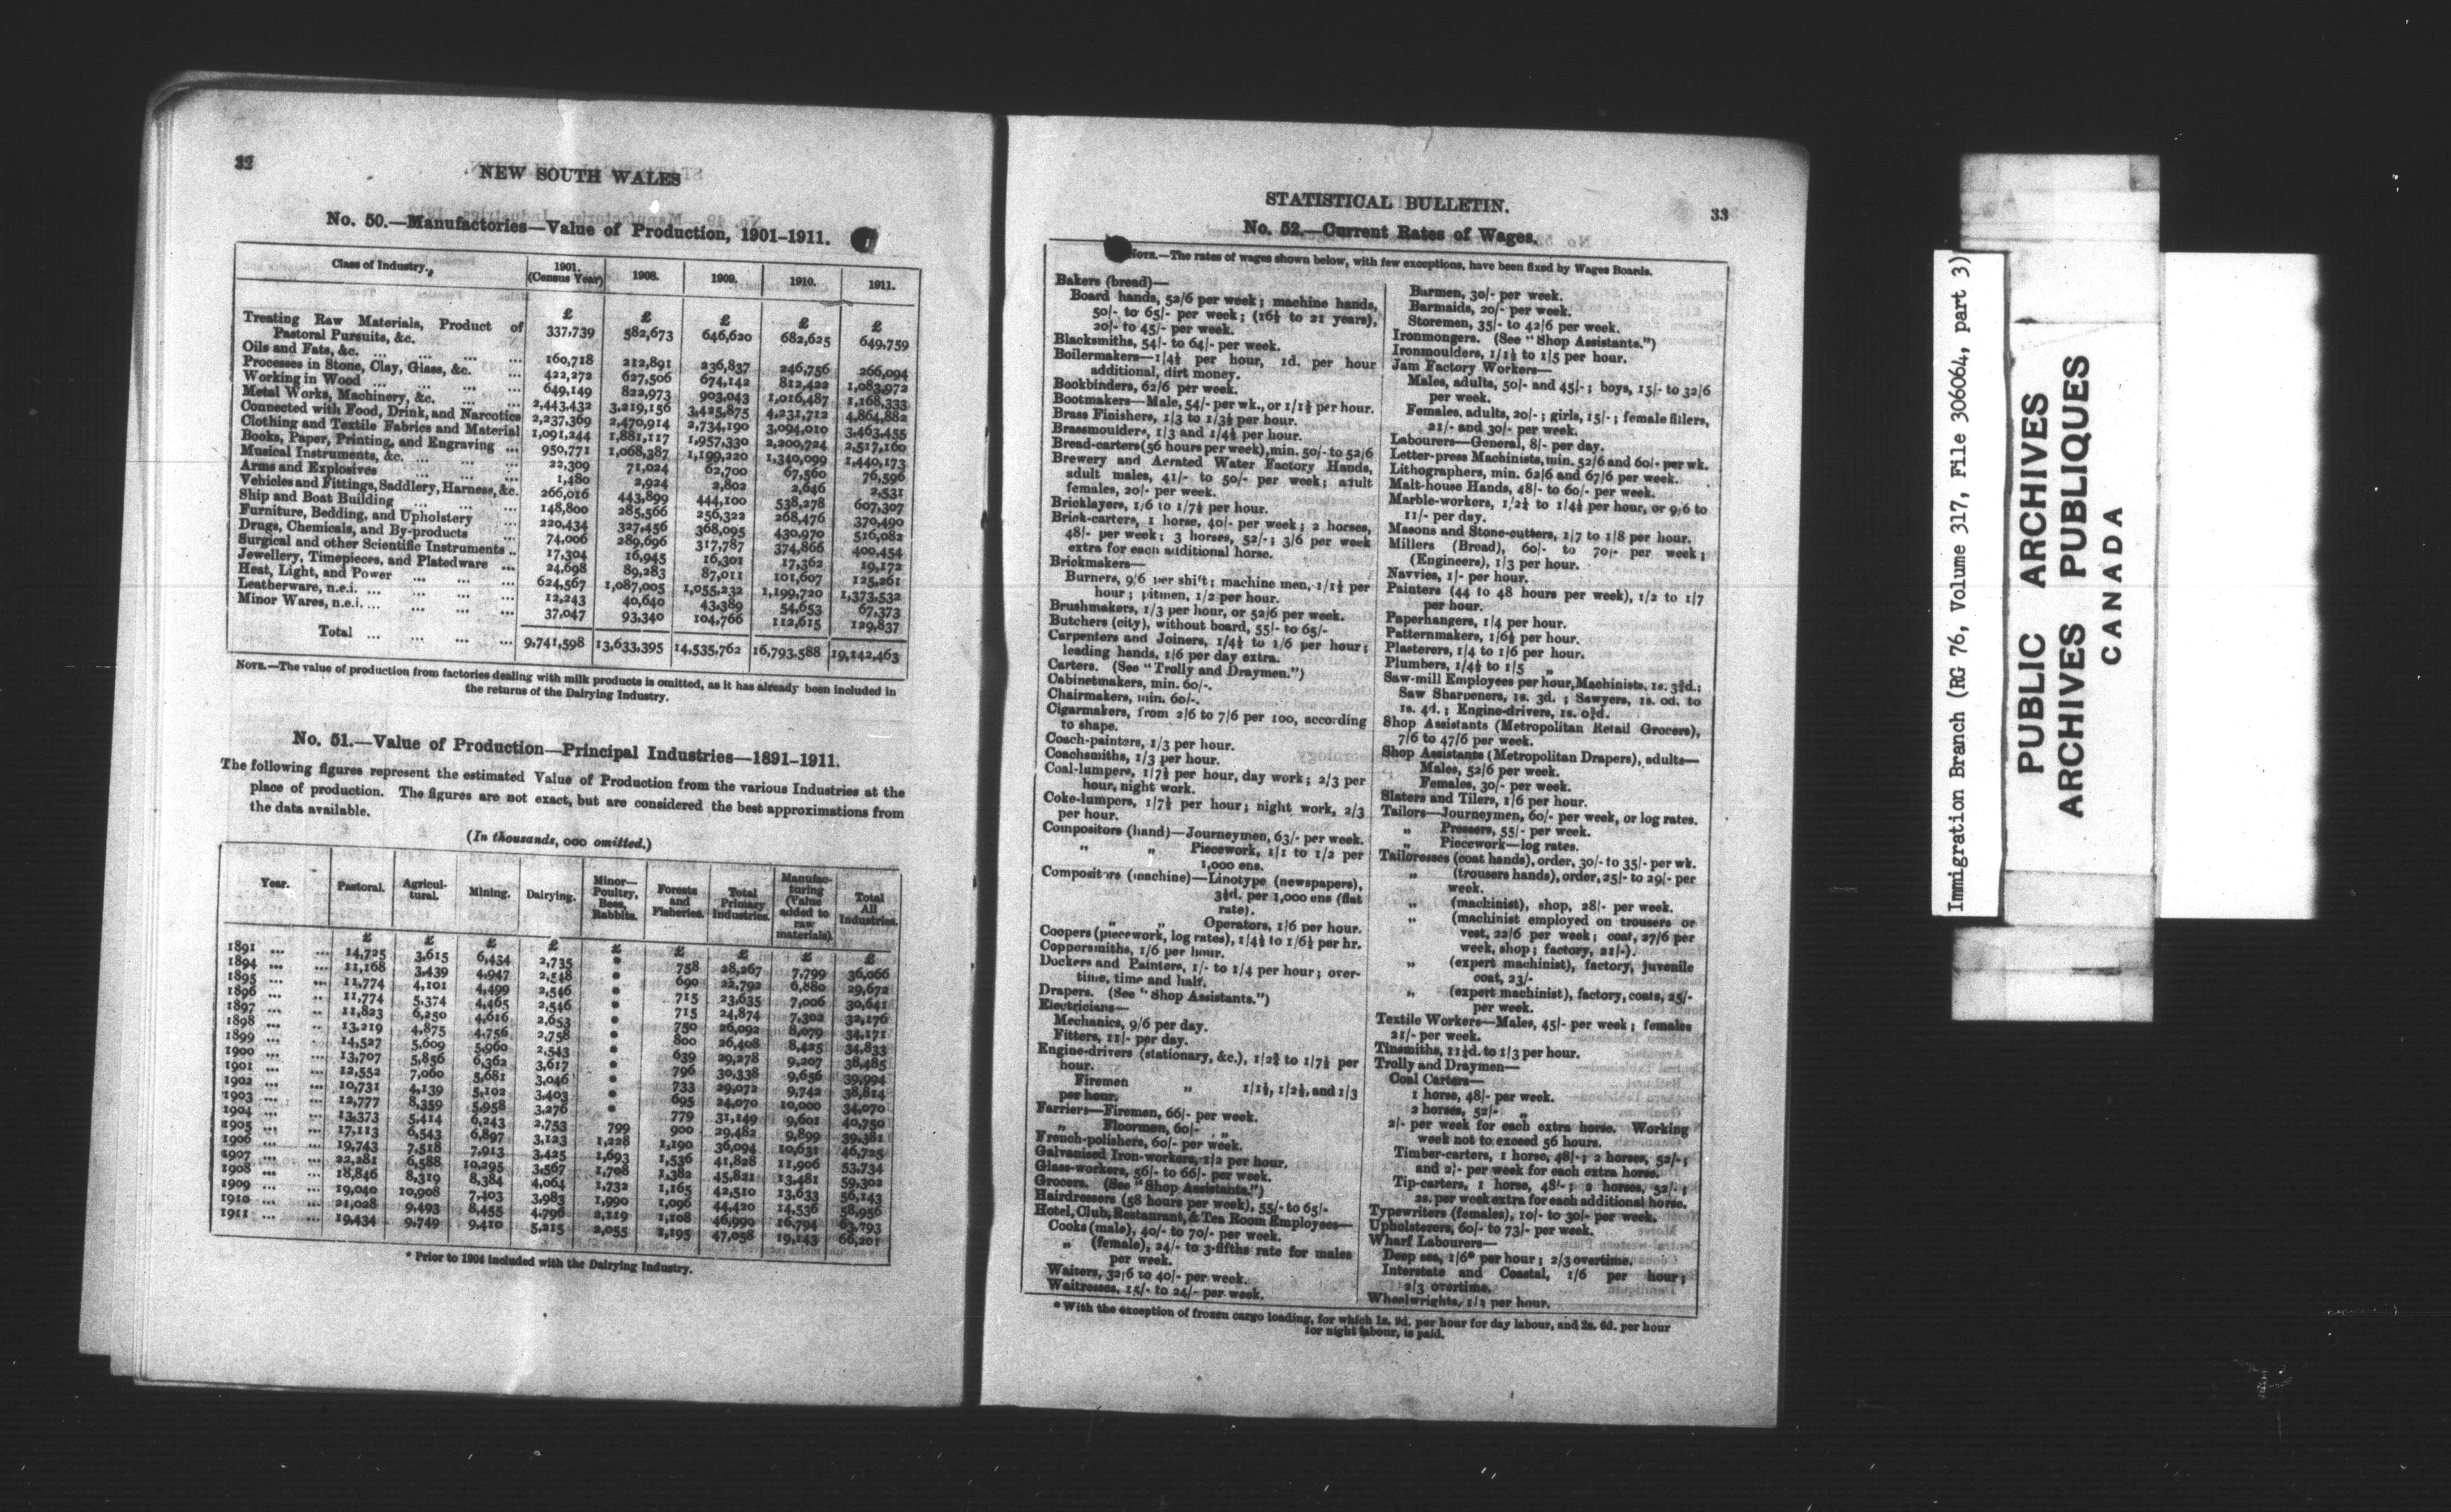 32
NEW SOUTH WALES
No. 50.—Manufactories—Value of Production, 1901-1911.
Class of Industry. 1901. (Census Year) 1908. 1909. 1910. 1911.
£ £ £ £ £
Treating Raw Materials, Product of
Pastoral Pursuits, &c. 337,739 582,673 646,620 682,625 649,759
Oils and Fats, &c. ... ... ... ... 160,718 212,891 236,837 246,756 266,094
Processes in Stone, Clay, Glass, &c. ... 422,272 627,506 674,142 812,422 1,083,972
Working in Wood ... ... ... ... 649,149 822,973 903,043 1,016,487 1,168,333
Metal Works, Machinery, &c. ... ... 2,443,432 3,219,156 3,425,875 4,231,712 4,864,882
Connected with Food, Drink, and Narcotics 2,237,369 2,470,914 2,734,190 3,094,010 3,463,455
Clothing and Textile Fabrics and Material 1,091,244 1,881,117 1,957,330 2,200,724 2,517,160
Books, Paper, Printing, and Engraving ... 950,771 1,068,387 1,199,220 1,340,099 1,440,173
Musical Instruments, &c. ... ... ... 22,309 71,024 62,700 67,560 76,596
Arms and Explosives ... ... ... 1,480 2,924 2,802 2,646 2,531
Vehicles and Fittings, Saddlery, Harness, &c. 266,016 443,899 444,100 538,278 607,307
Ship and Boat Building ... ... ... 148,800 285,566 256,322 268,476 370,490
Furniture, Bedding, and Upholstery ... 220,434 327,456 368,095 430,970 516,082
Drugs, Chemicals, and By-products ... 74,006 289,696 317,787 374,866 400,454
Surgical and other Scientific Instruments .. 17,304 16,945 16,301 17,362 19,172
Jewellery, Timepieces, and Platedware ... 24,698 89,283 87,011 101,607 125,261
Heat, Light, and Power ... ... ... 624,567 1,087,005 1,055,232 1,199,720 1,373,532
Leatherware, n.e.i. ... ... ... ... 12,243 40,640 43,389 54,653 67,373
Minor Wares, n.e.i. ... ... ... ... 37,047 93,340 104,766 112,615 129,837
Total ... ... ... ... 9,741,598 13,633,395 14,535,762 16,793,588 19,142,463
NOTE.—The value of production from factories dealing with milk products is omitted, as it has already been included in
the returns of the Dairying Industry.
No. 51.—Value of Production—Principal Industries—1891-1911.
The following figures represent the estimated Value of Production from the various Industries at the
place of production. The figures are not exact, but are considered the best approximations from
the data available.
(In thousands, 000 omitted.)
Year. Pastoral. Agricultural. Mining. Dairying. Minor—Poultry, Bees, Rabbits. Forests and Fisheries. Total Primary Industries. Manufacturing (Value added to raw materials). Total All Industries.
£ £ £ £ £ £ £ £ £
1891 ... ... 14,725 3,615 6,434 2,735 * 758 28,267 7,799 36,066
1894 ... ... 11,168 3,439 4,947 2,548 * 690 22,792 6,880 29,672
1895 ... ... 11,774 4,101 4,499 2,546 * 715 23,635 7,006 30,641
1896 ... .. 11,774 5,374 4,465 2,546 * 715 24,874 7,302 32,176
1897 ... .. 11,823 6,250 4,616 2,653 * 750 26,092 8,079 34,171
1898 ... .. 13,219 4,875 4,756 2,758 * 800 26,408 8,425 34,833
1899 ... ... 14,527 5,609 5,960 2,543 * 639 29,278 9,207 38,485
1900 ... ... 13,707 5,856 6,362 3,617 * 796 30,338 9,656 39,994
1901 ... ... 12,552 7,060 5,681 3,046 * 733 29,072 9,742 38,814
1902 ... ... 10,731 4,139 5,102 3,403 * 695 24,070 10,000 34,070
1903 ... ... 12,777 8,359 5,958 3,276 * 779 31,149 9,601 40,750
1904 ... ... 13,373 5,414 6,243 2,753 799 900 29,482 9,899 39,381
1905 ... ... 17,113 6,543 6,897 3,123 1,228 1,190 36,094 10,631 46,725
1906 ... ... 19,743 7,518 7,913 3,425 1,693 1,536 41,828 11,906 53,734
1907 ... ... 22,281 6,588 10,295 3,567 1,708 1,382 45,821 13,481 59,302
1908 ... ... 18,846 8,319 8,384 4,064 1,732 1,165 42,510 13,633 56,143
1909 ... ... 19,040 10,908 7,403 3,983 1,990 1,096 44,420 14,536 58,956
1910 ... ... 21,028 9,493 8,455 4,796 2,119 1,108 46,999 16,794 63,793
1911 ... ... 19,434 9,749 9,410 5,215 2,055 1,195 47,058 19,143 66,201
* Prior to 1904 included with the Dairying Industry.
STATISTICAL BULLETIN.
33
No. 52.—Current Rates of Wages.
NOTE.—The rates of wages shown below, with few exceptions, have been fixed by Wages Boards.
Bakers (bread)—
Board hands, 52/6 per week; machine hands,
50/- to 65/- per week; (16½ to 21 years),
20/- to 45/- per week.
Blacksmiths, 54/- to 64/- per week.
Boilermakers—1/4½ per hour, 1d. per hour
additional, dirt money.
Bookbinders, 62/6 per week.
Bootmakers—Male, 54/- per wk., or 1/1½ per hour.
Brass Finishers, 1/3 to 1/3½ per hour.
Brassmoulders, 1/3 and 1/4½ per hour.
Bread-carters (56 hours per week), min. 50/- to 52/6
Brewery and Aerated Water Factory Hands,
adult males, 41/- to 50/- per week; adult
females, 20/- per week.
Bricklayers, 1/6 to 1/7½ per hour.
Brick-carters, 1 horse, 40/- per week; 2 horses,
48/- per week; 3 horses, 52/-; 3/6 per week
extra for each additional horse.
Brickmakers—
Burners, 9/6 per shift; machine men, 1/1½ per
hour; pitmen, 1/2 per hour.
Brushmakers, 1/3 per hour, or 52/6 per week.
Butchers (city), without board, 55/- to 65/-
Carpenters and Joiners, 1/4½ to 1/6 per hour;
leading hands, 1/6 per day extra.
Carters. (See "Trolly and Draymen.")
Cabinetmakers, min. 60/-.
Chairmakers, min. 60/-.
Cigarmakers, from 2/6 to 7/6 per 100, according
to shape.
Coach-painters, 1/3 per hour.
Coachsmiths, 1/3 per hour.
Coal-lumpers, 1/7½ per hour, day work; 2/3 per
hour, night work.
Coke-lumpers, 1/7½ per hour; night work, 2/3
per hour.
Compositors (hand)—Journeymen, 63/- per week.
" " Piecework, 1/1 to 1/2 per
1,000 ens.
Compositors (machine)—Linotype (newspapers),
3½d. per 1,000 ens (flat
rate).
" " Operators, 1/6 per hour.
Coopers (piecework, log rates), 1/4½ to 1/6½ per hr.
Coppersmiths, 1/6 per hour.
Dockers and Painters, 1/- to 1/4 per hour; over-
time, time and half.
Drapers. (See "Shop Assistants.")
Electricians—
Mechanics, 9/6 per day.
Fitters, 11/- per day.
Engine-drivers (stationary, &c.), 1/2¾ to 1/7½ per
hour.
Firemen " 1/1½, 1/2½, and 1/3
per hour.
Farriers—Firemen, 66/- per week.
" Floormen, 60/- "
French-polishers, 60/- per week.
Galvanised Iron-workers, 1/2 per hour.
Glass-workers, 56/- to 66/- per week.
Grocers. (See "Shop Assistants.")
Hairdressers (58 hours per week), 55/- to 65/-
Hotel, Club, Restaurant, & Tea Room Employees—
Cooks (male), 40/- to 70/- per week.
" (female), 24/- to 3-fifths rate for males
per week.
Waiters, 32/6 to 40/- per week.
Waitresses, 15/- to 24/- per week.
Barmen, 30/- per week.
Barmaids, 20/- per week.
Storemen, 35/- to 42/6 per week.
Ironmongers. (See "Shop Assistants.")
Ironmoulders, 1/1½ to 1/5 per hour.
Jam Factory Workers—
Males, adults, 50/- and 45/-; boys, 15/- to 32/6
per week.
Females, adults, 20/-; girls, 15/-; female fillers,
21/- and 30/- per week.
Labourers—General, 8/- per day.
Letter-press Machinists, min. 52/6 and 60/- per wk.
Lithographers, min. 62/6 and 67/6 per week.
Malt-house Hands, 48/- to 60/- per week.
Marble-workers, 1/2½ to 1/4½ per hour, or 9/6 to
11/- per day.
Masons and Stone-cutters, 1/7 to 1/8 per hour.
Millers (Bread), 60/- to 70/- per week;
(Engineers), 1/3 per hour.
Navvies, 1/- per hour.
Painters (44 to 48 hours per week), 1/2 to 1/7
per hour.
Paperhangers, 1/4 per hour.
Patternmakers, 1/6½ per hour.
Plasterers, 1/4 to 1/6 per hour.
Plumbers, 1/4½ to 1/5 "
Saw-mill Employees per hour, Machinists, 1s. 3¾d.;
Saw Sharpeners, 1s. 3d.; Sawyers, 1s. 0d. to
1s. 4d.; Engine-drivers, 1s. 0¾d.
Shop Assistants (Metropolitan Retail Grocers),
7/6 to 47/6 per week.
Shop Assistants (Metropolitan Drapers), adults—
Males, 52/6 per week.
Females, 30/- per week.
Slaters and Tilers, 1/6 per hour.
Tailors—Journeymen, 60/- per week, or log rates.
" Pressers, 55/- per week.
" Piecework—log rates.
Tailoresses (coat hands), order, 30/- to 35/- per wk.
" (trousers hands), order, 25/- to 29/- per
week.
" (machinist), shop, 28/- per week.
" (machinist employed on trousers or
vest, 22/6 per week; coat, 27/6 per
week, shop; factory, 21/-).
" (expert machinist), factory, juvenile
coat, 23/-
" (expert machinist), factory, coats, 25/-
per week.
Textile Workers—Males, 45/- per week; females
21/- per week.
Tinsmiths, 11½d. to 1/3 per hour.
Trolly and Draymen—
Coal Carters—
1 horse, 48/- per week.
2 horses, 52/- "
2/- per week for each extra horse. Working
week not to exceed 56 hours.
Timber-carters, 1 horse, 48/-; 2 horses, 52/-;
and 2/- per week for each extra horse.
Tip-carters, 1 horse, 48/-; 2 horses, 52/-;
2s. per week extra for each additional horse.
Typewriters (females), 10/- to 30/- per week.
Upholsterers, 60/- to 73/- per week.
Wharf Labourers—
Deep sea, 1/6* per hour; 2/3 overtime.
Interstate and Coastal, 1/6 per hour;
2/3 overtime.
Wheelwrights, per hour.
* With the exception of frozen cargo loading, for which 1s. 9d. per hour for day labour, and 2s. 6d. per hour
for night labour, is paid.
Immigration Branch (RG 76, Volume 317, File 306064, part 3)
PUBLIC ARCHIVES
ARCHIVES PUBLIQUES
CANADA